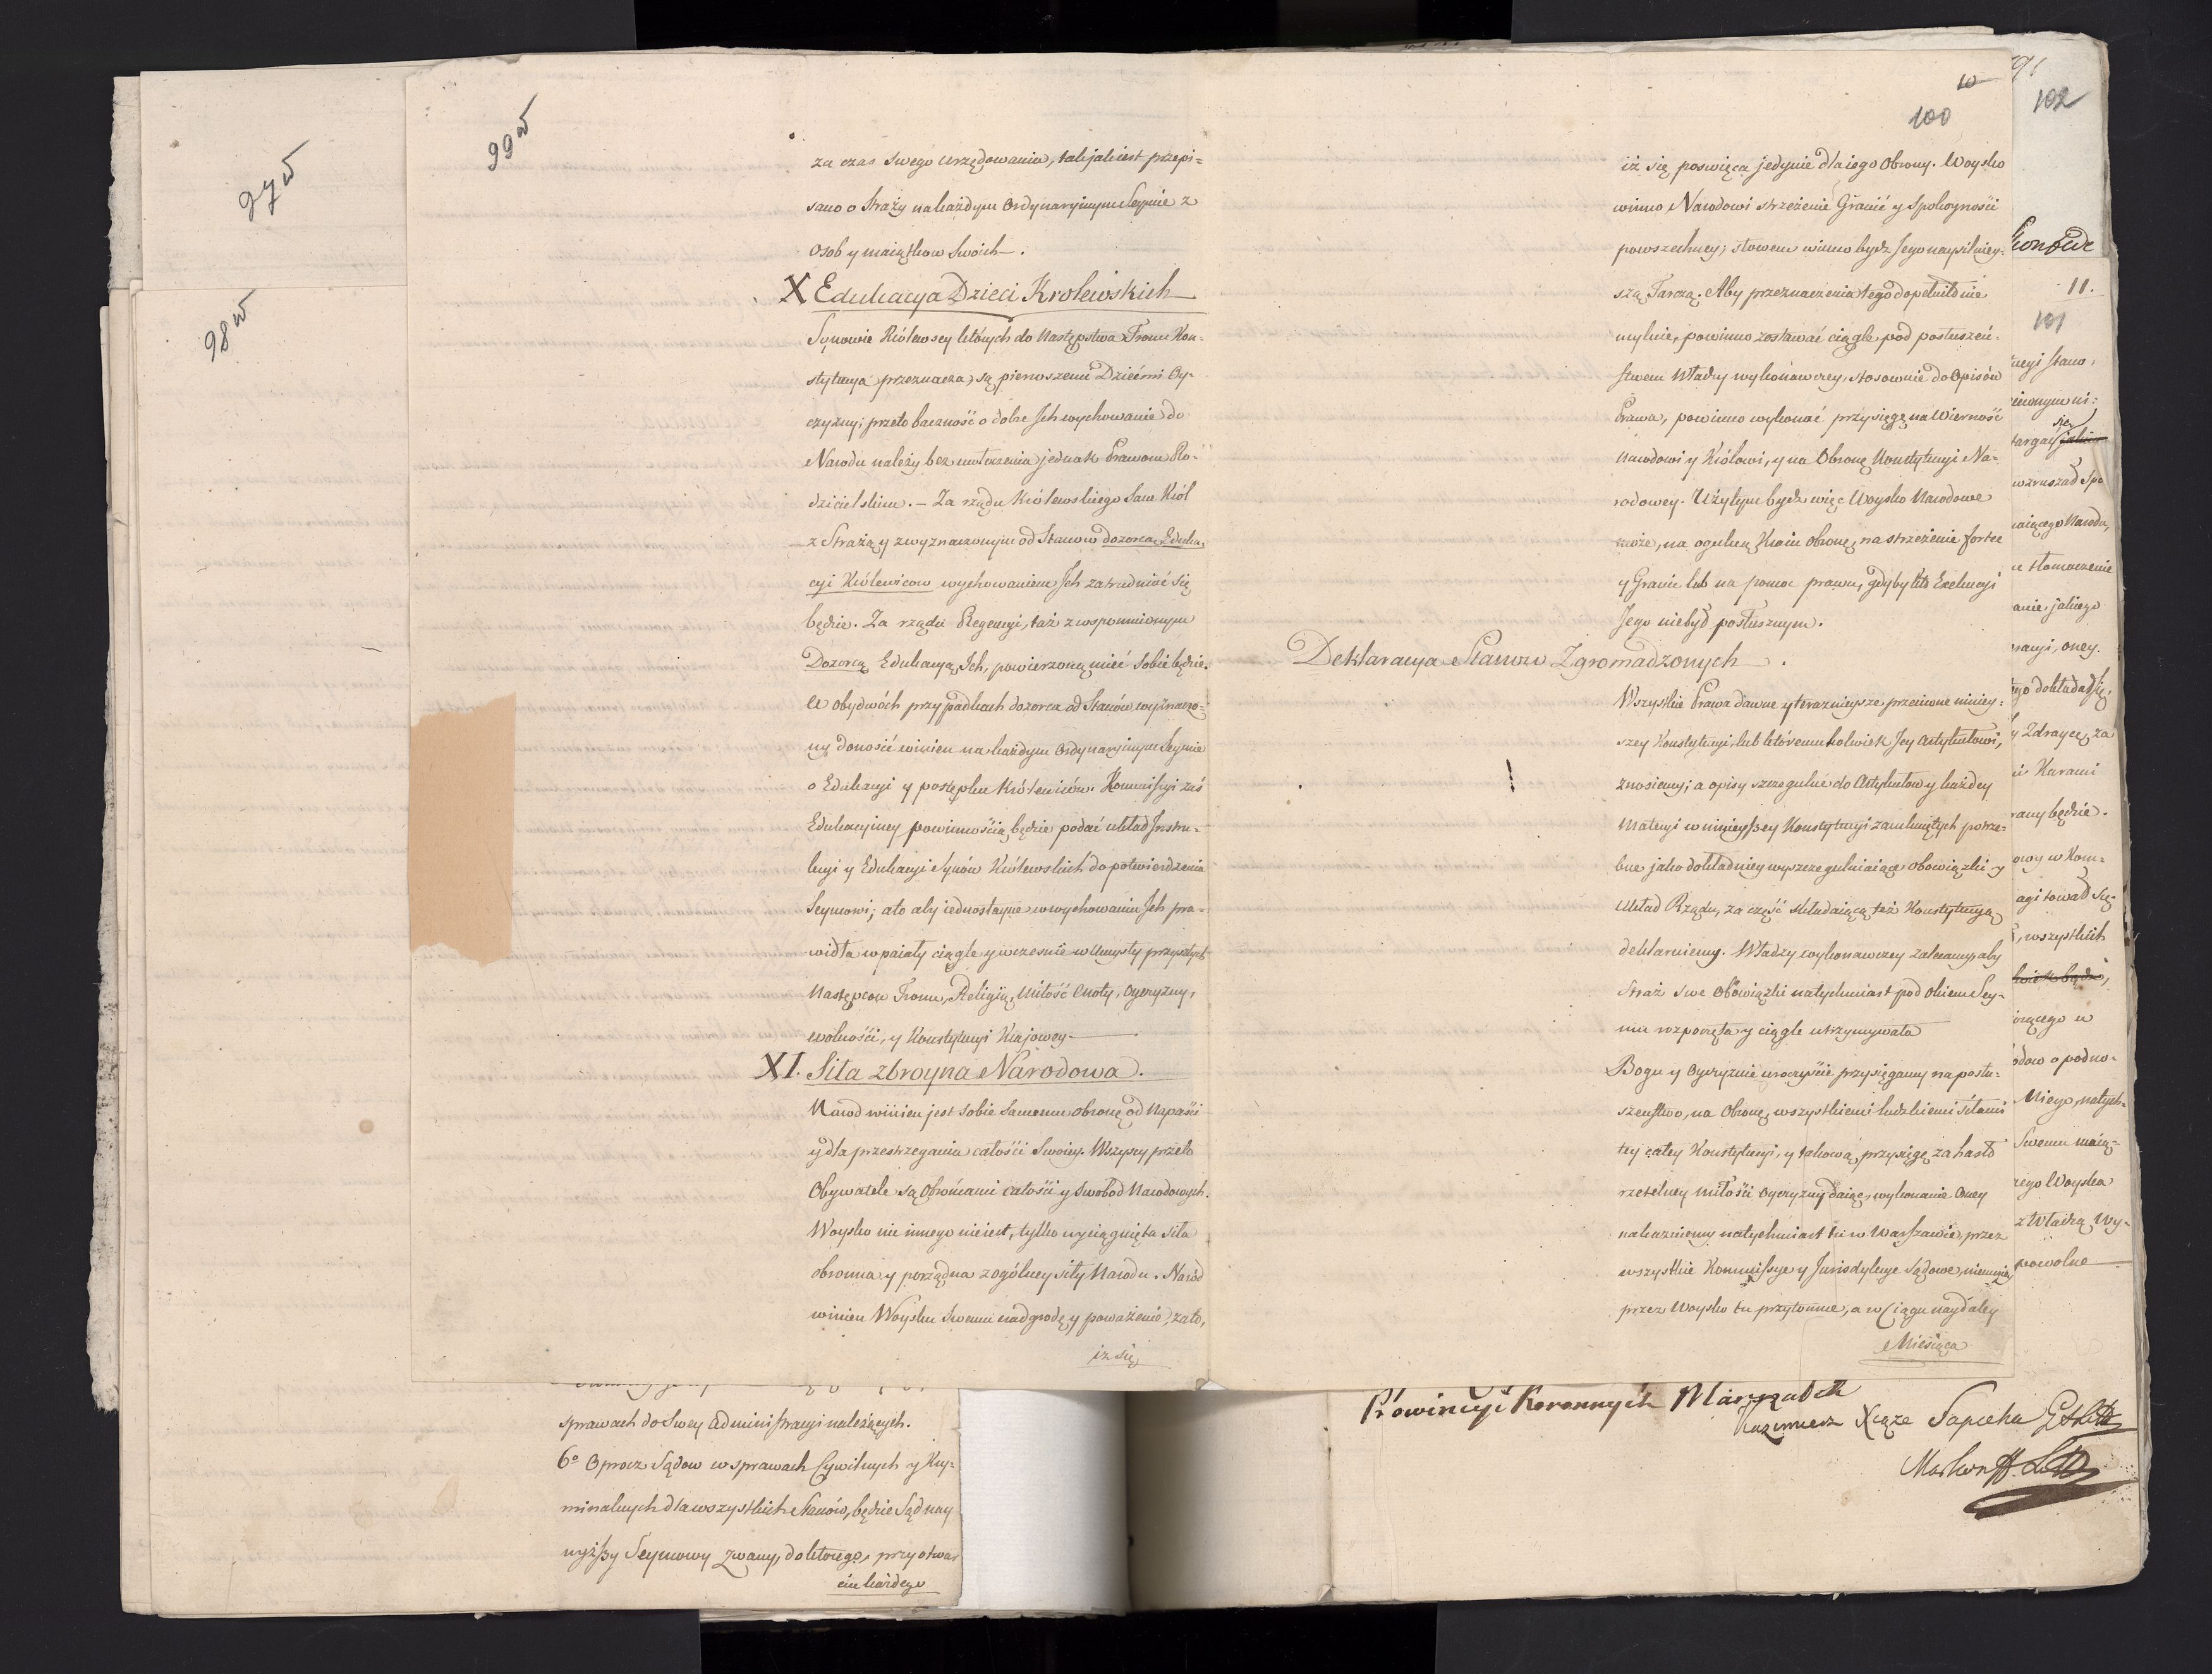 97v
98v
99v
za czas swego urzędowania, tak jak iest przepi=
sano o Straży na każdym Ordynaryinym Seymie z
osob y maiątkow swoich.
X Edukacya Dzieci Krolewskich
Synowie Królewscy których do Następstwa Tronu Kon-
stytucya przeznacza, są pierwszemi Dziećmi Oy-
czyzny; przeto baczność o dobre Ich wychowanie do
Narodu należy bez uwłoczenia jednak Prawom Ro-
dzicielskim. – Za rządu Królewskiego Sam Król
z Strażą y z wyznaczonym od Stanow dozorcą Eduka-
cyi Królewicow wychowaniem Ich zatrudniać się
będzie. Za rządu Regencyi, taż z wspomnionym
Dozorcą Edukacyą Ich, powierzoną mieć sobie będzie.
W obydwóch przypadkach dozorca od Stanów wyznaczo-
ny donosić winien na każdym Ordynaryinym Seymie
o Edukacyi y postępku Królewiców. Kommissyi zaś
Edukacyiney powinnością będzie podać układ Instru-
kcyi y Edukacyi Synów Królewskich do potwierdzenia
Seymowi; a to aby iednostayne w wychowaniu Ich pra-
widła wpaiały ciągle y wczesnie w Umysły przyszłych
Następcow Tronu, Religią, Miłość Cnoty, Oyczyzny,
wolności, y Konstytucyi Krajowey.
XI. Siła zbroyna Narodowa.
Narod winien jest sobie samemu obronę od Napaści
y dla przestrzegania całości Swoiey. Wszyscy przeto
Obywatele są Obrońcami całości y swobod Narodowych.
Woysko nic innego nie iest, tylko wyciągnięta siła
obronna y porządna z ogólney siły Narodu. Naród
winien Woysku swemu nadgrodę y poważenie, za to,
iż się
sprawach do Swey administracyi należących.
6° Oprocz Sądow w sprawach Cywilnych y Kry-
minalnych dla wszystkich Stanów, będzie Sąd nay
wyższy Seymowy zwany, do ktorego, przy otwar
ciu każdego
10
100
iż się poswięca jedynie dla iego Obrony. Woysko
winno Narodowi strzeżenie Granic y Spokoyności
powszechney; słowem winno bydz Jego naysilniey-
szą Tarczą. Aby przeznaczenia tego dopełniło nie
mylnie, powinno zostawać ciągle, pod posłuszeń-
stwem Władzy wykonawczey, stosownie do Opisów
Prawa, powinno wykonać przysięgę na Wierność
Narodowi y Królowi, y na Obronę Konstytucyi Na-
rodowey. Użytym bydz więc Woysko Narodowe
może, na ogulną Kraiu obronę, na strzeżenie fortec
y Granic lub na pomoc prawu, gdyby kto Exekucyi
Jego niebył posłusznym.
Deklaracya Stanow Zgromadzonych.
Wszystkie Prawa dawne y teraznieysze przeciwne niniey-
szey Konstytucyi, lub któremukolwiek Jey Artykułowi,
znosiemy; a opisy szczegulne do Artykułow y każdey
Materyi w ninieyszey Konstytucyi zamkniętych potrze-
bne jako dokładniey wyszczegulniaiące obowiązki y
Układ Rządu, za część składaiącą też Konstytucyą
deklaruiemy. Władzy wykonawczey zalecamy, aby
Straż swe Obowiązki natychmiast pod okiem Sey-
mu rozpoczęła y ciągle utrzymywała
Bogu y Oyczyznie uroczyście przysięgamy na posłu-
szeństwo, na Obronę wszystkiemi ludzkiemi siłami
tey całey Konstytucyi, y takową przysięgę za hasło
rzetelney miłości Oyczyzny daiąc, wykonanie Oney
nakazuiemy natychmiast tu w Warszawie, przez
wszystkie Kommissye y Jurisdykcye Sądowe, niemniey
przez Woysko tu przytomne, a w Ciągu naydaley
Miesiąca
102
11.
101
cyi stano,
targa
się
wzruszał spo
aiącego Narodu,
tłomaczenie
anie, jakiego
oney.
go dokładał się,
Zdraycę, za
Karami
rany będzie.
owy w Kom-
agitował się
wszystkich
odow o podno-
Niego, natych-
Swemu maią-
ego Woyska
z Władzą Wy-
powolne
Prowincyi Koronnych Marszałek
Kazimierz Xiąże Sapieha